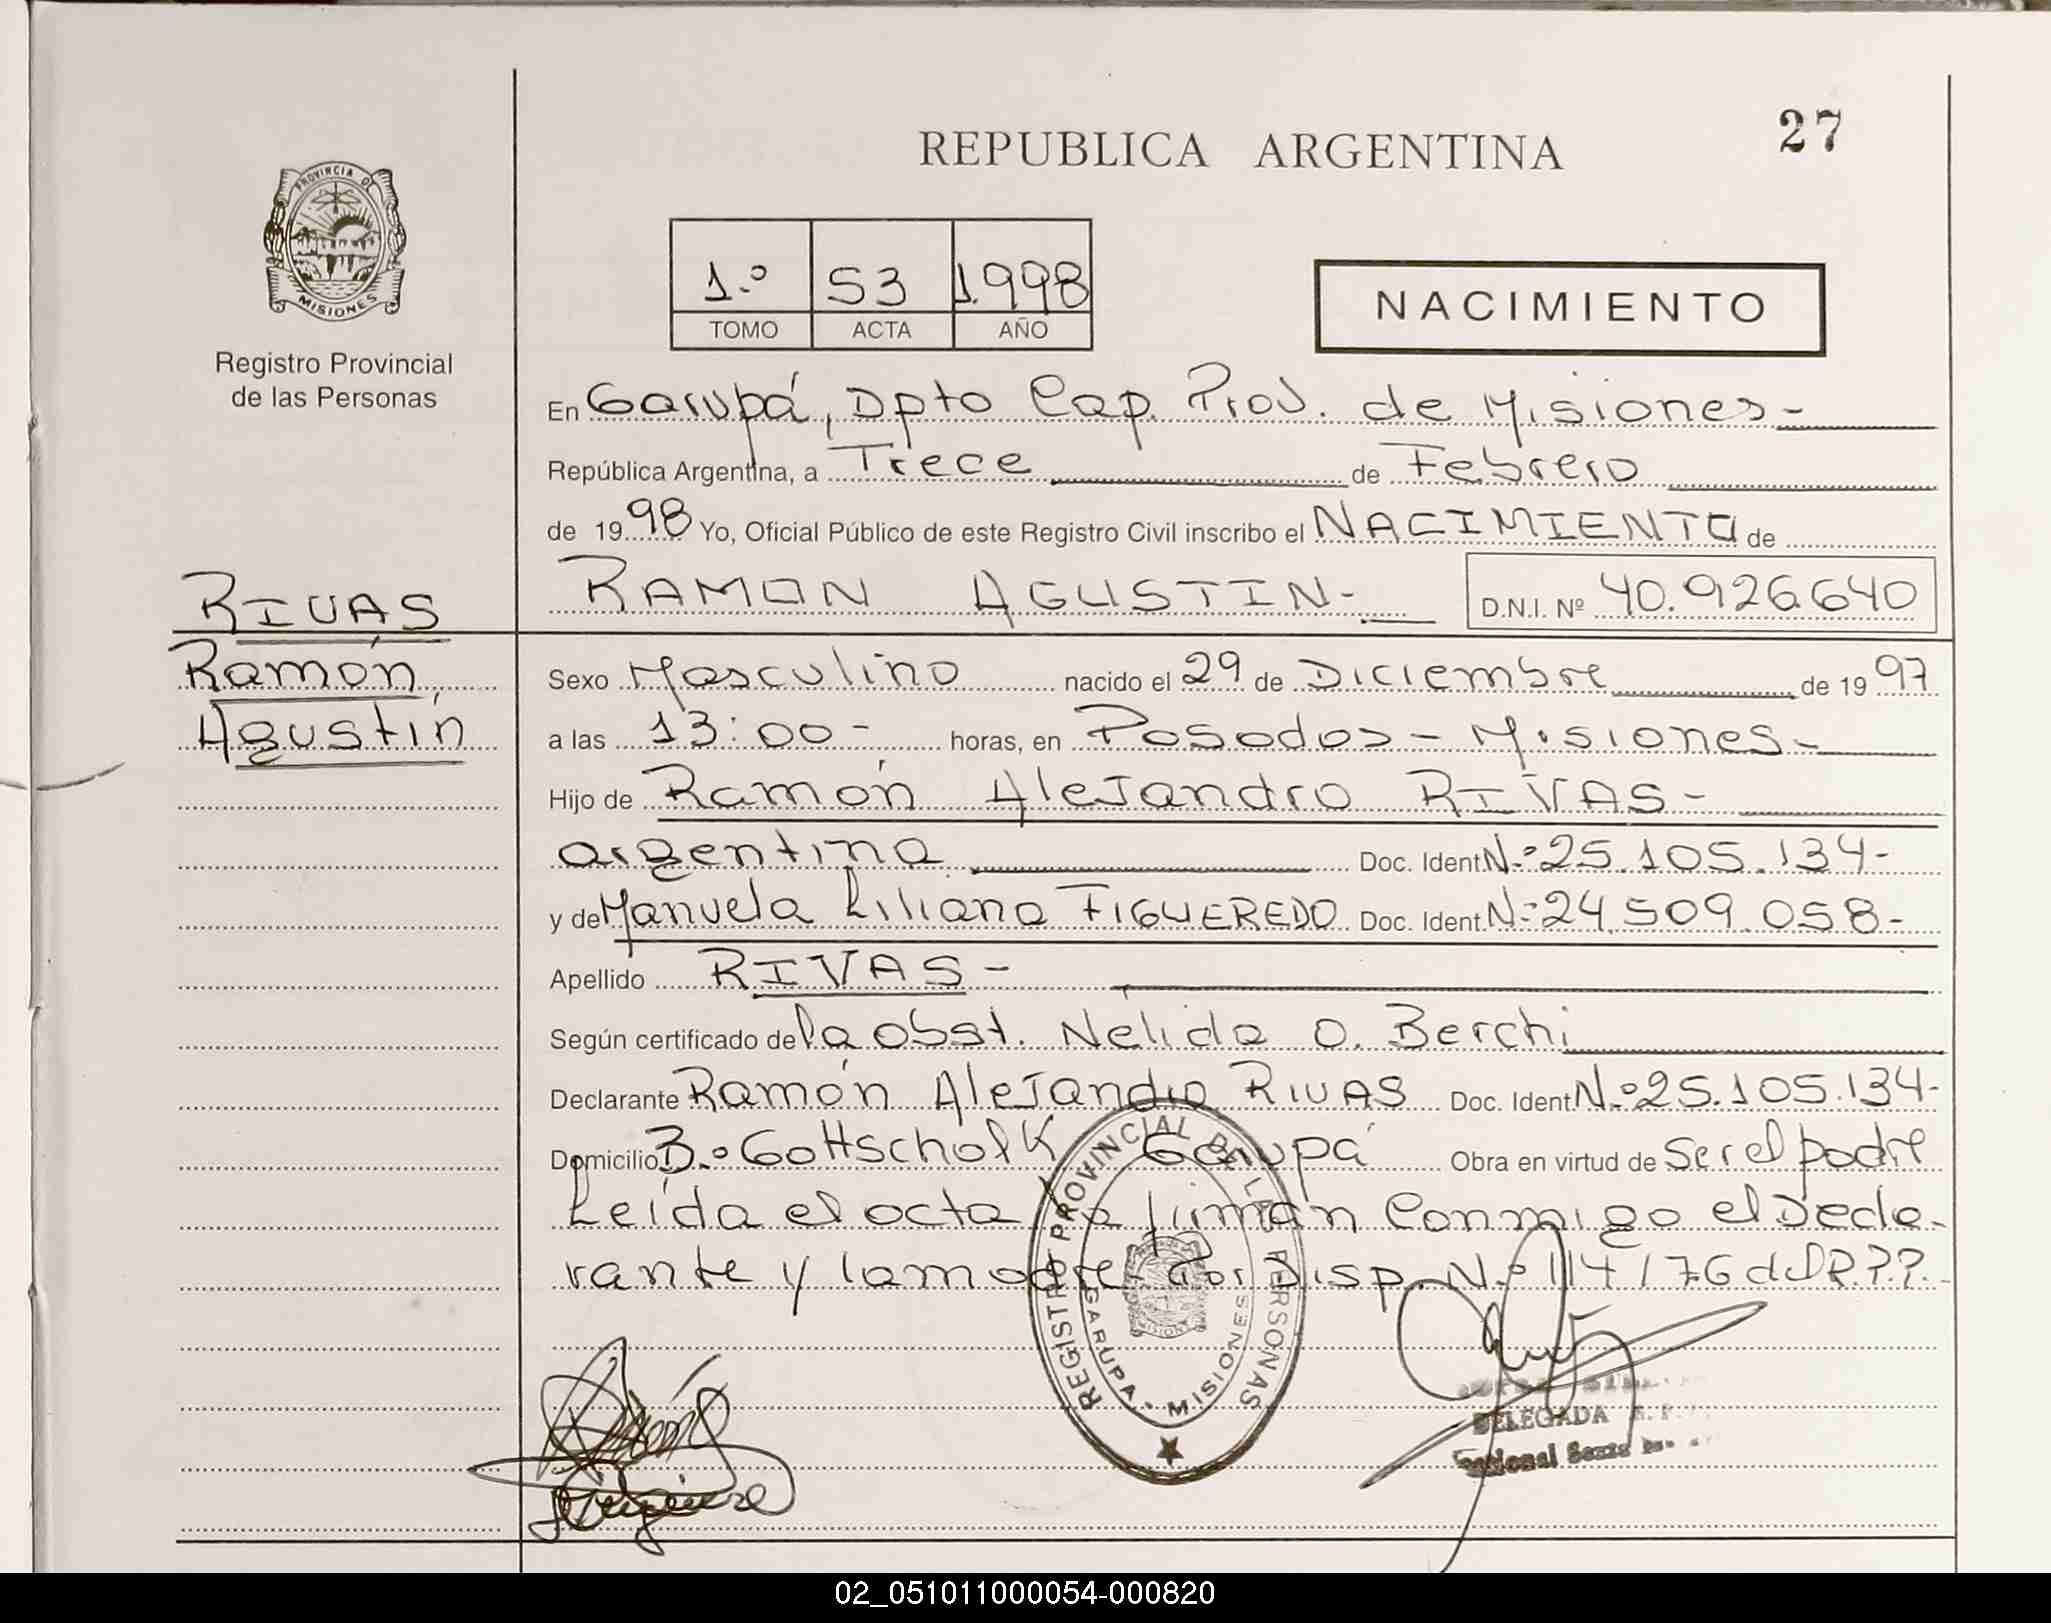 27
REPUBLICA ARGENTINA
PROVINCIA DE
MISIONES
Registro Provincial
de las Personas
1.º 53 1.998
TOMO ACTA AÑO
NACIMIENTO
En Garupá, Dpto Cap. Prov. de Misiones-
República Argentina, a Trece de Febrero
de 1998 Yo, Oficial Público de este Registro Civil inscribo el NACIMIENTO de
RAMON AGUSTIN- D.N.I. Nº 40.926.640
RIVAS
Ramón
Agustín
Sexo Masculino nacido el 29 de Diciembre de 1997
a las 13:00- horas, en Posadas - Misiones-
Hijo de Ramón Alejandro RIVAS-
argentina Doc. Ident. N.º 25.105.134-
y de Manuela Liliana FIGUEREDO Doc. Ident. N.º 24.509.058-
Apellido RIVAS-
Según certificado de la obst. Nelida O. Berchi
Declarante Ramón Alejandro RIVAS Doc. Ident. N.º 25.105.134-
Domicilio B.º Gottschalk Garupá Obra en virtud de Ser el padre
Leída el acta la firman Conmigo el Decla-
rante y la madre Por Disp. N.º 114/76 d
REGISTRO PROVINCIAL DE LAS PERSONAS
GARUPA - MISIONES
DELEGADA
02_051011000054-000820